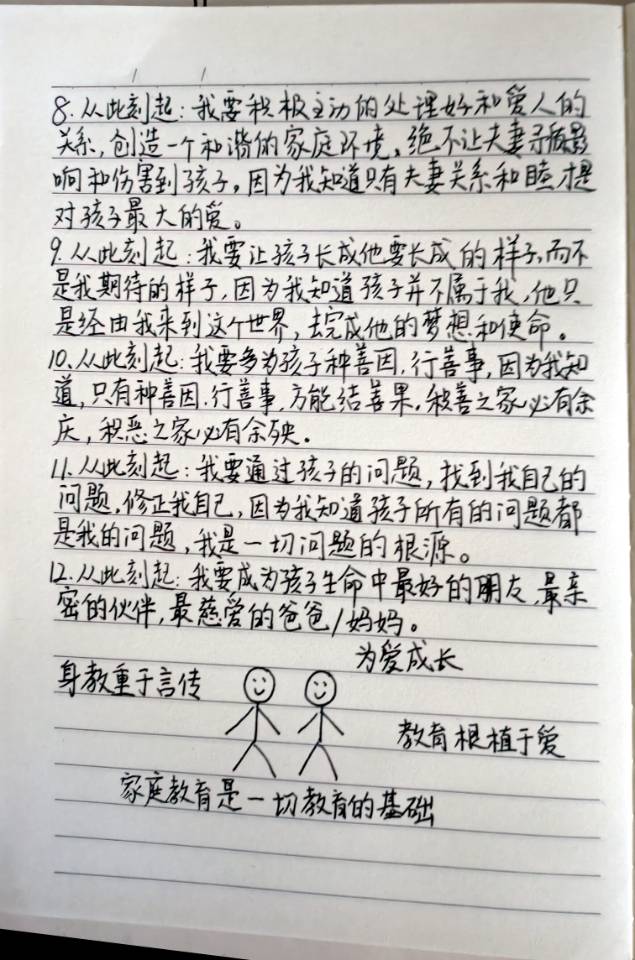 8. 从此刻起：我要积极主动的处理好和爱人的
关系，创造一个和谐的家庭环境，绝不让夫妻矛盾影
响和伤害到孩子。因为我知道只有夫妻关系和睦才是
对孩子最大的爱。
9. 从此刻起：我要让孩子长成他要长成的样子，而不
是我期待的样子，因为我知道孩子并不属于我，他只
是经由我来到这个世界，去完成他的梦想和使命。
10. 从此刻起：我要多为孩子种善因，行善事，因为我知
道，只有种善因，行善事，方能结善果。积善之家必有余
庆，积恶之家必有余殃。
11. 从此刻起：我要通过孩子的问题，找到我自己的
问题，修正我自己，因为我知道孩子所有的问题都
是我的问题，我是一切问题的根源。
12. 从此刻起：我要成为孩子生命中最好的朋友，最亲
密的伙伴，最慈爱的爸爸/妈妈。
为爱成长
身教重于言传
教育根植于爱
家庭教育是一切教育的基础